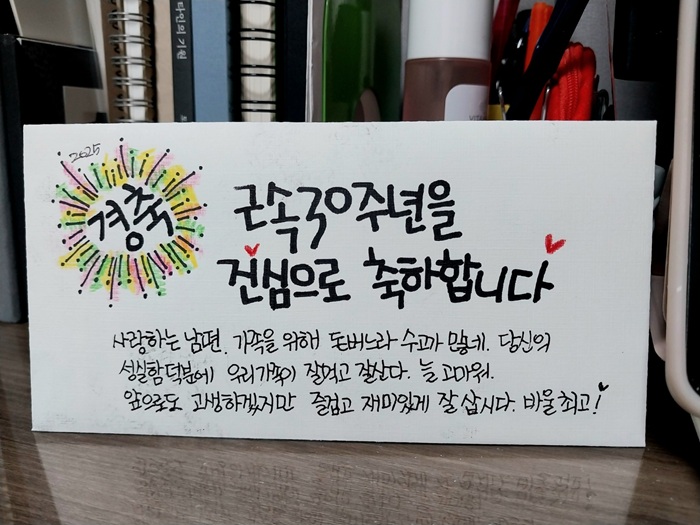 타인의 기원
2025
경축
근속30주년을
진심으로 축하합니다
사랑하는 남편. 가족을 위해 돈버느라 수고가 많네. 당신의
성실함 덕분에 우리가족이 잘먹고 잘산다. 늘 고마워.
앞으로도 고생하겠지만 즐겁고 재미있게 잘 삽시다. 바울최고!